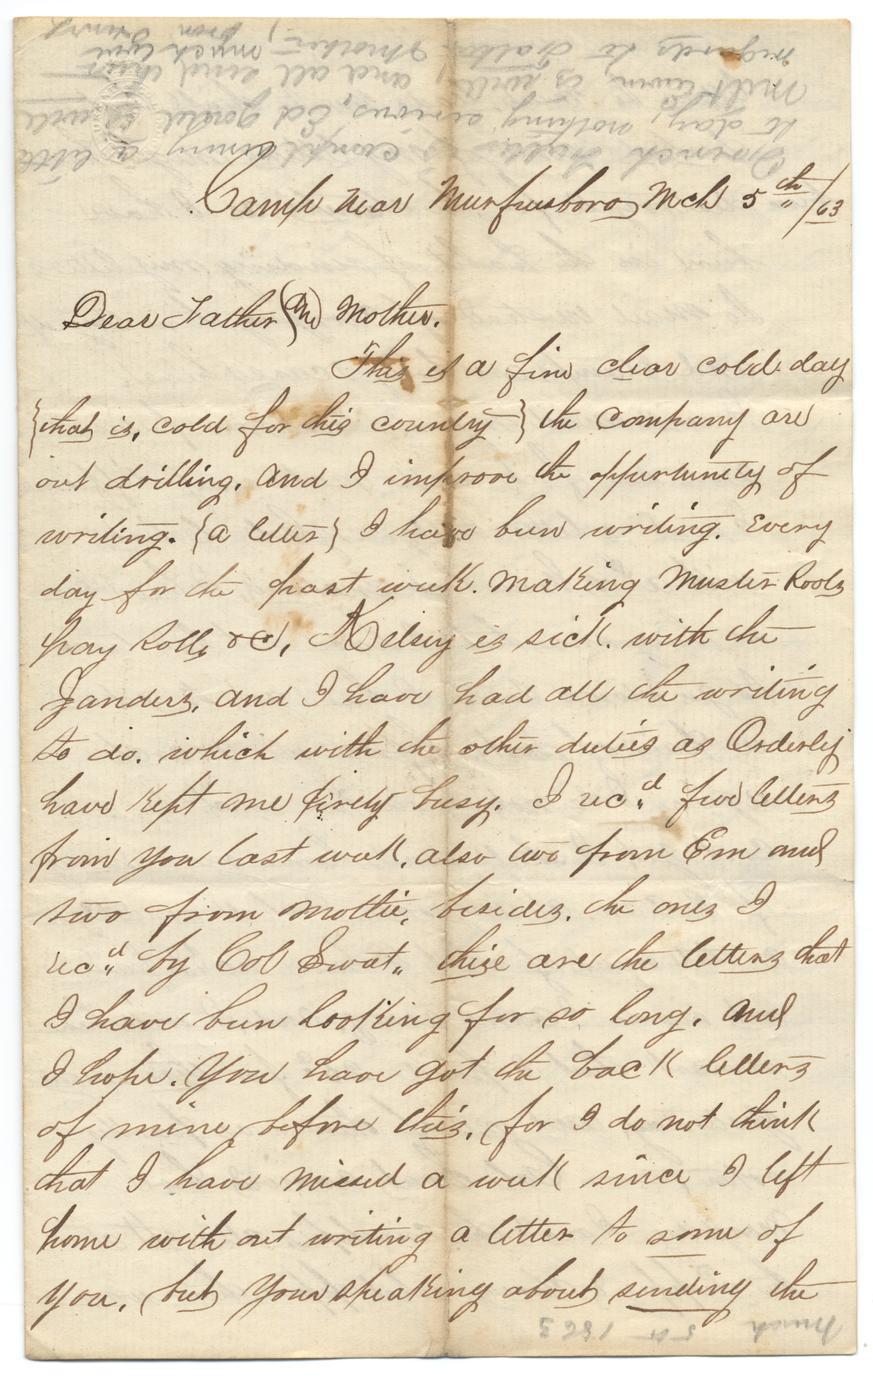 Camp near Murfreesboro Mch 5th/63
Dear Father (and) Mother.
This is a fine clear cold day
{that is, cold for this country} the company are
out drilling. and I improve the oppurtunety of
writing. {a letter} I have been writing. Every
day for the past week. making Muster Rools
pay Rolls &c, Kelsey is sick. with the
Janders, and I have had all the writing
to do. which with the other duties as Orderly
have kept me busy. I recd five letters
from you last week, also two from Em and
two from Mottie, besides, the ones I
recd by Col Swat, these are the letters that
I have been looking for so long, and
I hope. You have got the back letters
of mine before this, for I do not think
that I have missed a week since I left
home with out writing a letter to some of
you, but your speaking about sending the
March 5th 1863
to day, nothing serious, Ed is well
Milt is well, and all send their
regards to Father Mother,